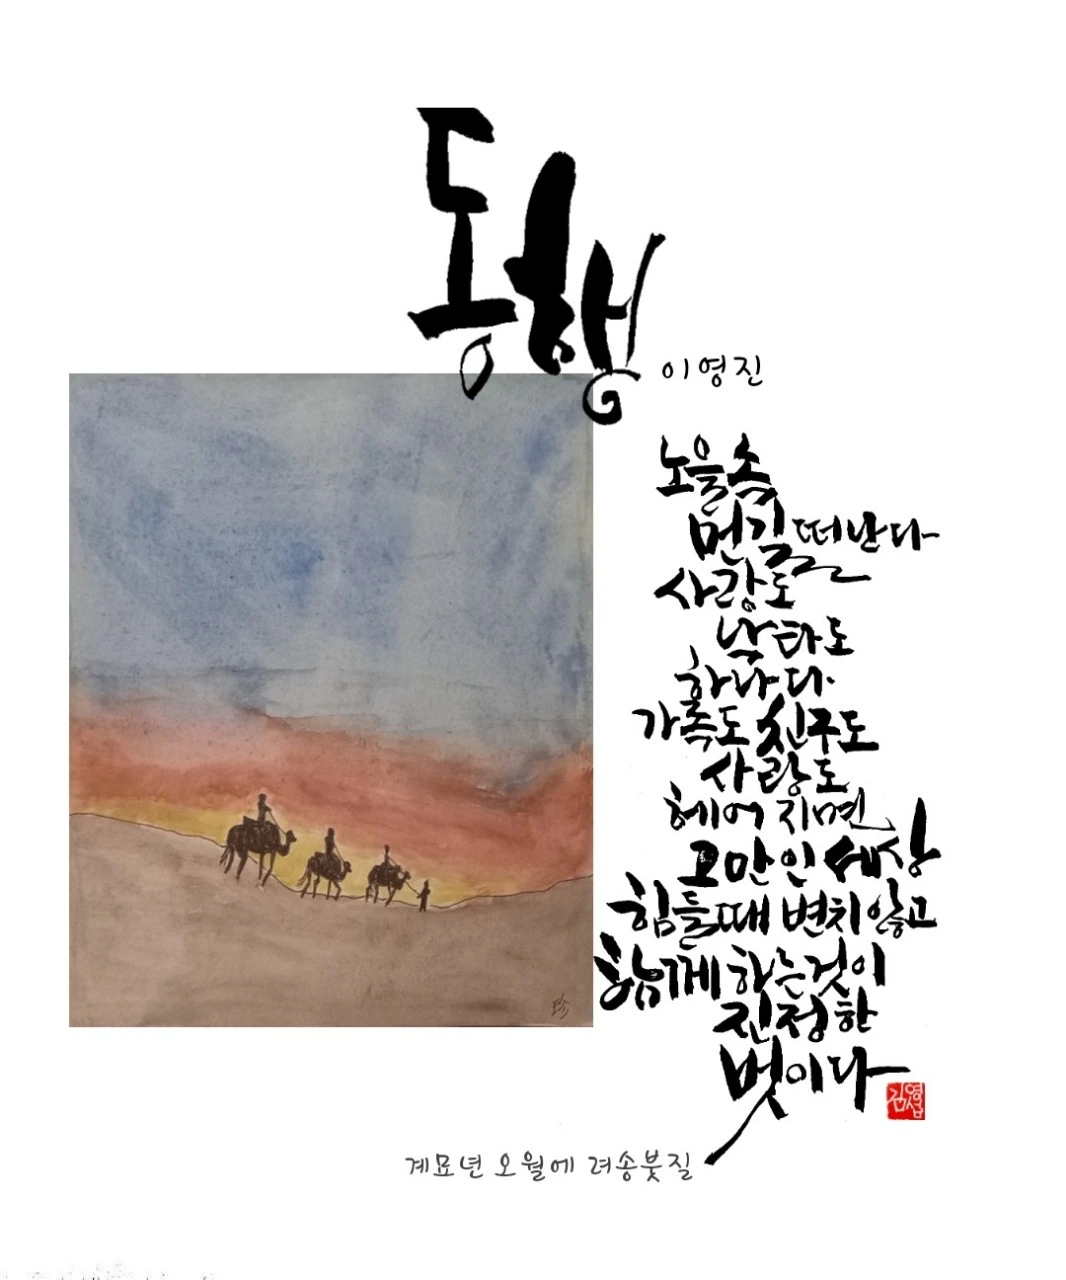 동행
이영진
노을속
먼길 떠난다
사람도
낙타도
하나다.
가족도 친구도
사랑도
헤어지면
그만인 세상
힘들때 변치않고
함께 하는것이
진정한
벗이다
계묘년 오월에 려송붓질
珍